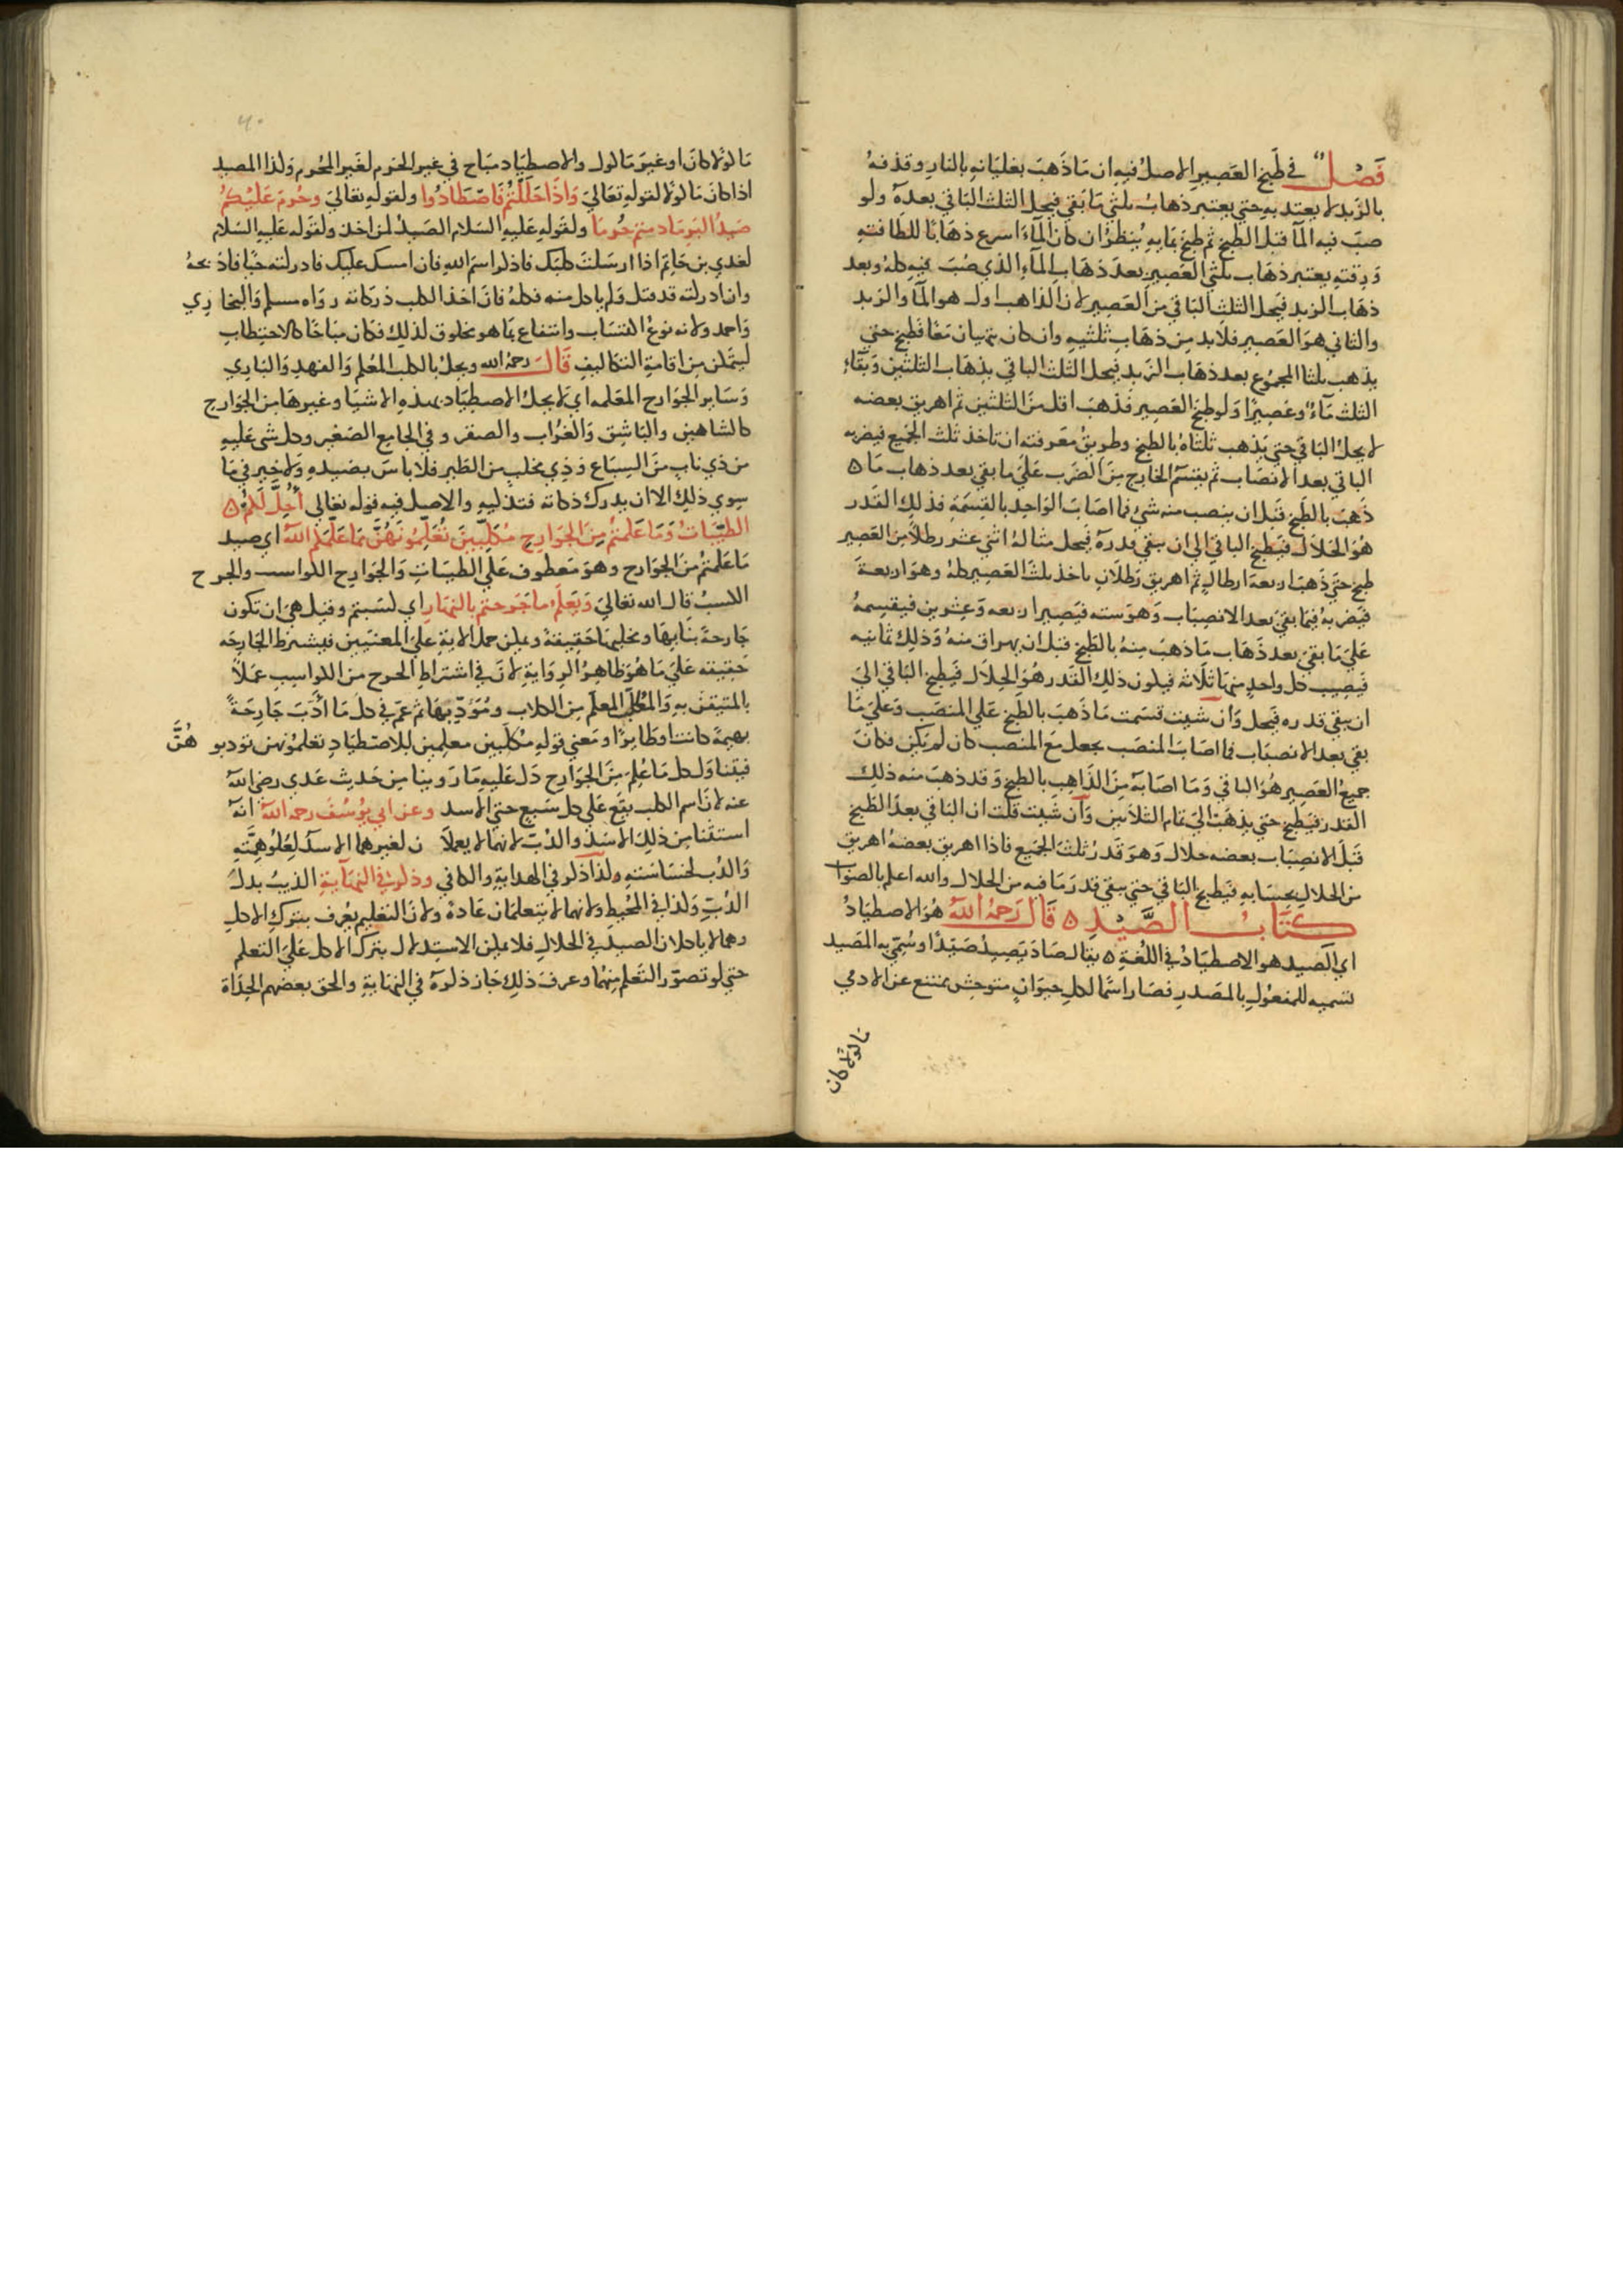 فَصْل في طَبخ العَصِير الاصلُ فيه ان مَا ذَهبَ بغليَانهِ بالنار وقذفهُ
بالزَبد لا يعتد به حتي يعتبر ذهابُ ثلثي مَا بَقي فيحل الثلث البَاقي بعدهُ ولو
صبّ فيه المآ قبل الطبخ ثم طبخ بمَايهِ يُنظرُ ان كان المآءَ اسرع ذهَابًا للطافتهِ
وَرِقتهِ يعتبر ذهَاب ثلثي العَصِير بعدَ ذهَابِ المآءِ الذي صُبَ فيهِ كلهُ وبعد
ذهَاب الزبد فيحل الثلث البَاقي من العَصِير لان الذاهب اول هو المآ والزبد
والثاني هوَ العَصِير فلابد من ذهَاب ثلثيهِ وان كان يذهبان مَعًا فطبخ حتي
يذهب ثلثا المجمُوع بعد ذهَاب الزبد فيحل الثلث الباقي بذهَاب الثلثين وَبَقاءِ
الثلث مَآءً وعَصِيرًا وَلو طبخ العَصِير فذهبَ اقل منَ الثلثين ثم اهريق بعضه
لا يحلُ البَاقي حتي يَذهب ثلثاهُ بالطبخ وطريقُ مَعرفته ان تاخذ ثلث الجَميع فيضربه
الباقي بعد الانصَاب ثم يقسّم الخارج منَ الضَرب عَليَ ما بقي بعد ذهاب مَا ه
ذَهبَ بالطبخ قبل ان ينصب منه شي فما اصَابَ الوَاحِد بالقِسمَةِ فذلك القَدر
هُوَ الحَلال فيَطبخ الباقي الي ان يبقي قدرهُ فيحل مثالهُ اثني عشر رطلاً من العَصِير
طبخ حتي ذَهبَ اربعة ارطالٍ ثم اهريق رَطلان ياخذ ثلثَ العَصِير كلهُ وهوَ اربعة
فيَضربهُ فيما بقيَ بعد الانصِبَاب وَهوَ سته فيَصِير اربعه وَعشرين فيَقسِمهُ
عَليَ مَا بقيَ بعد ذَهَاب مَا ذهبَ مِنهُ بالطَبخ قبل ان يهراق منهُ وَذلك ثمانيه
فيَصِيب كل واحدٍ منهَا ثلاثه فيكون ذلك القَدر هُوَ الحلال فيَطبخ البَاقي اليَ
ان يبقي قدره فيَحل وَان شيت قسَمت مَا ذَهبَ بالطبخ عَلي المنصَب وَعليَ مَا
بقي بعد الانصبَاب فما اصَابَ المنصَب يجعل مَع المنصَب كان لم يَكن فكانَ
جميعُ العَصِير هُوَ الباقي وَمَا اصَابَه منَ الذَاهِب بالطبخ وَقد ذهبَ منه ذلِك
القَدر فيَطبخ حتي يذهَبَ الي تمام الثلاثين وَان شيت قلت ان البَاقي بعدَ الطَبخ
قبلَ الانصِبَاب بعضه حلال وَهوَ قَدرُ ثلثَ الجَميع فاذا اهريق بعضهُ اهريق
من الحَلال بحسَابهِ فيَطبخ البَاقي حتي يبقي قدر مَا فيه من الحَلال والله اعلم بالصوَاب
كتَابُ الصَّيْدِ ه قَالَ رَحمهُ اللهُ هُوَ الاصطيَادُ
اي الصَيد هو الاصطيَادُ في اللغةِ ه يقال صَادَ يَصِيدُ صَيْدًا وسُمّي به المصَيد
تسميه للمفعُول بالمصَدر فصَار اسمًا لكل حيوَانٍ متوحش ممتنع عن الادمي
مَاكولاً كان
مَاكولاً كانَ او غيرَ مَاكول والاصطيَاد مبَاح في غير الحَرم لغَير المحُرم وَكذا المصِيد
اذا كانَ مَاكولاً لقولهِ تعَاليَ وَاذَا حَلَلْتُمْ فَاصْطَادُوا ولقولهِ تعَاليَ وحُرمَ عَلَيْكُمْ
صَيدُ البَرّ مَا دمتم حُرُمَا ولقولهِ عَليهِ السَلام الصَيدُ لمن اخذ ولقوله عَليهِ السَلام
لعَدي بن حَاتم اذا ارسَلتَ كلبَك فاذكر اسمَ اللهِ فان امسك عليك فادركته حَيّا فاذبحهُ
وان ادركته قد قتل وَلم ياكل منه فكلهُ فانَ اخذ الكلب ذكاته رواه مسلم وَالبخاري
وَاحمد ولانه نوعُ اكتسَاب وانتفاع بمَا هو مخلوق لذلك فكان مبَاحًا كالاحتطاب
ليتمكن مِن اقامةِ التكاليف قَالَ رحمهُ الله ويحلُ بالكلب المُعَلم وَالفهدِ وَالبَازي
وَسَاير الجَوَارح المعَلمه اي لا يحلُ الاصطيَاد بهذهِ الاشيَا وغيرهَا منَ الجَوَارح
كالشاهين والبَاشق وَالغُرَاب والصقر وفي الجَامع الصَغير وكل شي عَليه
من ذي نابٍ منَ السِبَاع وَذِي مخلبٍ من الطَير فلا باسَ بصَيدهِ وَلا خير في مَا
سِوي ذلك الا ان يدرك ذكاته فتذكيهِ والاصل فيه قوله تعَالي أُحِلَّ لَكُمُ ه
الطَيّبَاتُ وَمَا عَلمتمُ مِنَ الجَوَارِحِ مُكَلِّبِينَ تُعَلِّمُونَهُنَّ مَا عَلَّمَكُمُ اللهُ اي صيد
مَا عَلمتمُ منَ الجَوَارح وهوَ مَعطوف عَليَ الطيبَاتِ وَالجَوَارح الكواسب والجرح
الكسبُ قال الله تعَاليَ وَيَعلَمُ ما جَرحتم بالنهَار اي كسَبتم وقيل هيَ ان تكون
جَارحة بنابِهَا ومخلبهَا حَقِيقةً ويمكن حمل الايةِ عليَ المعنَيين فيشترط الجَارحَه
حَقيقه عَليَ مَا هُوَ ظاهِرُ الروَايةِ لانَ في اشتراط الجرح من الكواسِب عَملاً
بالمتيقن بهِ وَالمُكَلِّبُ المعَلِم مِن الكلاب ومُؤدِّبهَا ثم عمَ في كل مَا أدَّبَ جَارِحَةً
بهيمَةً كانت او طَايرًا ومَعني قوله مُكَلِّبين معَلِمين للاصطيَادِ تعَلمُونهن تودبو هُنَّ
فيتناوَل كل مَا عُلِمَ منَ الجَوَارح دَل عَليهِ مَا رَوينا من حَديث عَدي رضي اللهُ
عنه لانَ اسم الكلب يقَع عَلي كل سَبع حتي الاسد وعن ابي يوُسُفَ رحمهُ اللهُ انهُ
استثنا من ذلِك الاسَد والدُبّ لانهمَا لا يعملاَن لغيرهما الاسدُ لِعُلوِ هِمَّتهِ
وَالدُب لخسَاسَتهِ وَلذا ذكر في الهدايةِ والكافي وذكر في النهَايةِ الذيبُ بدل
الدُبّ وَكذا في المُحيطِ ولانهما لا يتعلمَان عَادةً ولانَ التعَليم يعُرف بتركِ الاكلِ
وهما لا ياكلان الصيدَ في الحَال فلا يمكن الاستِدلال بترك الاكل عَليَ التعلم
حتي لو تصوّر التعَلم منهُما وعرفَ ذلِك جَاز ذكرهُ في النهَايةِ والحق بعضهم الحِدَاة